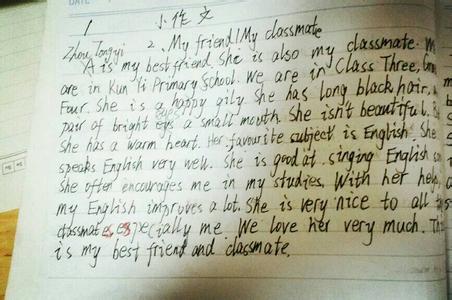 DATE
1 小作文
Zhou Tongyi 2. My friend/My classmate
A is my best friend. She is also my classmate.
are in Kun Yi Primary School. We are in Class Three,
Four. She is a happy gily. She has long black hair, a
pair of bright eyes a small mouth. She isn't beautiful.
She has a warm heart. Her favourite subject is English. She
speaks English very well. She is good at singing English
She often encourages me in my studies. With her help,
my English improves a lot. She is very nice to all
classmates, especially me. We love her very much.
is my best friend and classmate.